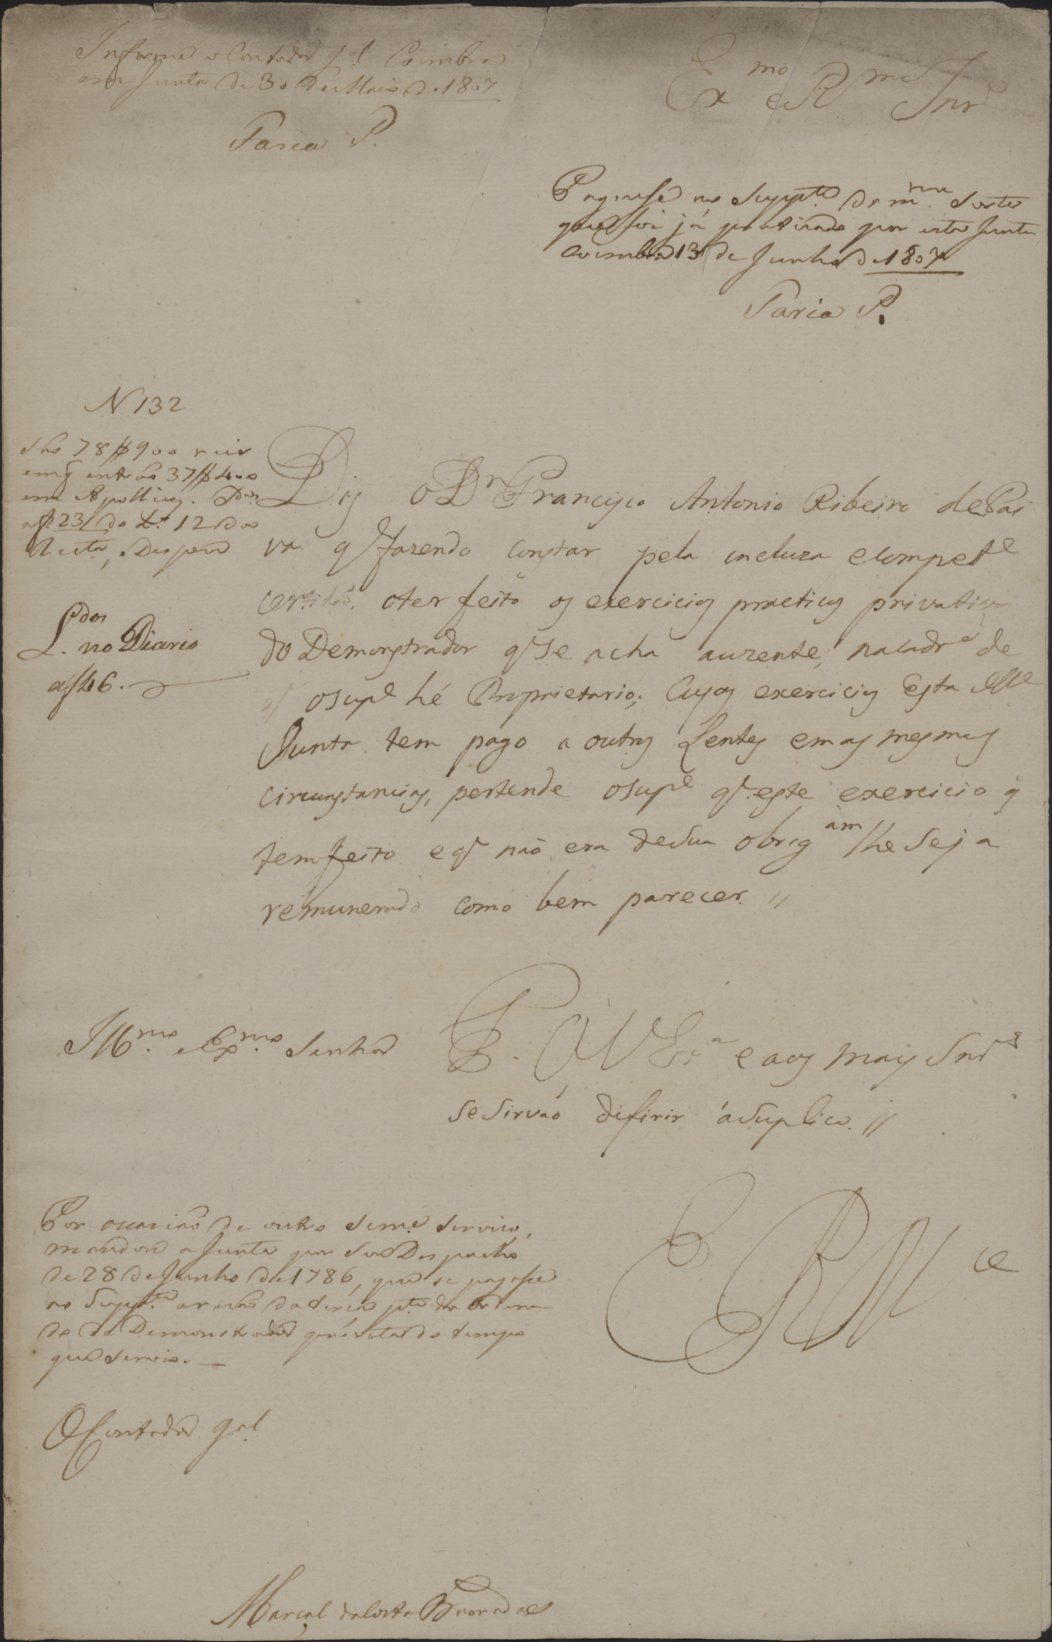 Informe o Contador g.al Coimbra
em Junta de 30 de Maio de 1807
Faria P.
Ex.mo e R.mo Snr
Paguese ao Supp.te da m.ma Sorte
que foi já praticado por esta Junta
Coimbra 13 de Junho de 1807
Faria P.
N 132
São 78$900 reis
em q entrão 37$400
em Apolices.
a f 23 do L.o 12 da
Receita, e Despeza
L.dos
no Diario
a f 46.
Diz o D.r Francisco Antonio Ribeiro de Pai
va q fazendo constar pela incluza e compet.e
certidão, o ter feito os exercicios practicos privativos
do Demonstrador q Se acha auzente, na cadr.a de
q o Sup.e hé Proprietario; Cujos exercicios Esta Ill.e
Junta tem pago a outros Lentes em as mesmas
circunstancias, pertende o Sup.e q este exercicio q
tem feito e q não era de Sua obrig.am lhe Seja
remunerado como bem parecer. //
Ill.mo e Ex.mo Senhor
P. a V Ex.a e aos mais Snr.s
Se Sirvão difirir á Suplica. //
Por occazião de outro Seme.e Serviço,
mandou a Junta por Seu Despacho
de 28 de Junho de 1786, que se pagasse
ao Supp.te a razão da terça p.te do ordena
do de Demonstrador pró rata do tempo
que Servio.
E R M ce
O Contador g.al
Marçal da Costa